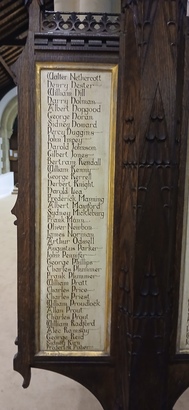 Walter Nethercott
Henry Dexter
William Dill
Harry Dolman
Albert Dopgood
George Doran
Sidney Howard
Percy Duggins
John Impey
Harold Johnson
Gilbert Jones
Bertram Kendall
William Kenny
George Kerrell
Herbert Knight
Harold Lea
Frederick Manning
Albert Mumford
Sydney Mickleburg
Frank Munn
Oliver Newbon
James Norman
Arthur Odsell
Augustus Parker
John Penifer
George Phillips
Charles Plummer
Frank Plummer
William Pratt
Charles Price
Charles Priest
William Proudlock
Allan Prout
Charles Prout
William Radford
Alec Ramsbey
George Reid
Sidney Rich